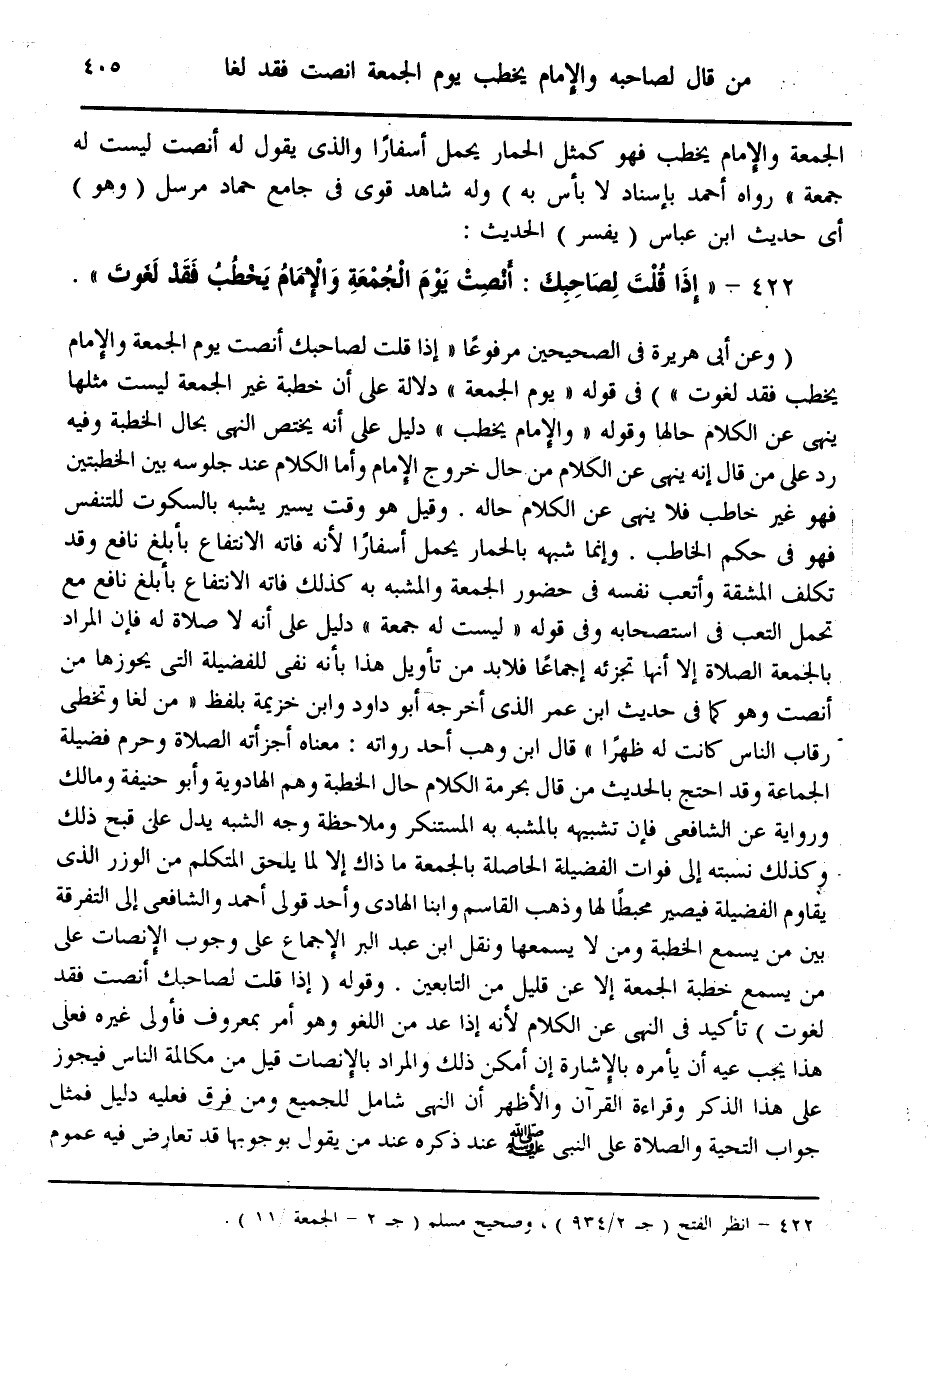 من قال لصاحبه والإمام يخطب يوم الجمعة انصت فقد لغا ٤٠٥
الجمعة والإمام يخطب فهو كمثل الحمار يحمل أسفارًا والذى يقول له أنصت ليست له
جمعة » رواه أحمد بإسناد لا بأس به ) وله شاهد قوى فى جامع حماد مرسل ( وهو )
أى حديث ابن عباس ( يفسر ) الحديث :
٤٢٢ – « إِذَا قُلْتَ لِصَاحِبِكَ : أَنْصِتْ يَوْمَ الْجُمْعَةِ وَالْإِمَامُ يَخْطُبُ فَقَدْ لَغَوتَ » .
( وعن أبى هريرة فى الصحيحين مرفوعًا « إذا قلت لصاحبك أنصت يوم الجمعة والإمام
يخطب فقد لغوت » ) فى قوله « يوم الجمعة » دلالة على أن خطبة غير الجمعة ليست مثلها
ينهى عن الكلام حالها وقوله « والإمام يخطب » دليل على أنه يختص النهى بحال الخطبة وفيه
رد على من قال إنه ينهى عن الكلام من حال خروج الإمام وأما الكلام عند جلوسه بين الخطبتين
فهو غير خاطب فلا ينهى عن الكلام حاله . وقيل هو وقت يسير يشبه بالسكوت للتنفس
فهو فى حكم الخاطب . وإنما شبهه بالحمار يحمل أسفارًا لأنه فاته الانتفاع بأبلغ نافع وقد
تكلف المشقة وأتعب نفسه فى حضور الجمعة والمشبه به كذلك فاته الانتفاع بأبلغ نافع مع
تحمل التعب فى استصحابه وفى قوله « ليست له جمعة » دليل على أنه لا صلاة له فإن المراد
بالجمعة الصلاة إلا أنها تجزئه إجماعًا فلابد من تأويل هذا بأنه نفى للفضيلة التى يحوزها من
أنصت وهو كما فى حديث ابن عمر الذى أخرجه أبو داود وابن خزيمة بلفظ « من لغا وتخطى
رقاب الناس كانت له ظهرًا » قال ابن وهب أحد رواته : معناه أجزأته الصلاة وحرم فضيلة
الجماعة وقد احتج بالحديث من قال بحرمة الكلام حال الخطبة وهم الهادوية وأبو حنيفة ومالك
ورواية عن الشافعى فإن تشبيهه بالمشبه به المستنكر وملاحظة وجه الشبه يدل على قبح ذلك
وكذلك نسبته إلى فوات الفضيلة الحاصلة بالجمعة ما ذاك إلا لما يلحق المتكلم من الوزر الذى
يقاوم الفضيلة فيصير محبطًا لها وذهب القاسم وابنا الهادى وأحد قولى أحمد والشافعى إلى التفرقة
بين من يسمع الخطبة ومن لا يسمعها ونقل ابن عبد البر الإجماع على وجوب الإنصات على
من يسمع خطبة الجمعة إلا عن قليل من التابعين . وقوله ( إذا قلت لصاحبك أنصت فقد
لغوت ) تأكيد فى النهى عن الكلام لأنه إذا عد من اللغو وهو أمر بمعروف فأولى غيره فعلى
هذا يجب عيه أن يأمره بالإشارة إن أمكن ذلك والمراد بالإنصات قيل من مكالمة الناس فيجوز
على هذا الذكر وقراءة القرآن والأظهر أن النهى شامل للجميع ومن فرق فعليه دليل فمثل
جواب التحية والصلاة على النبى ﷺ عند ذكره عند من يقول بوجوبها قد تعارض فيه عموم
٤٢٢ – انظر الفتح ( جـ ٩٣٤/٢ ) ، وصحيح مسلم ( جـ ٢ – الجمعة / ١١ ) .